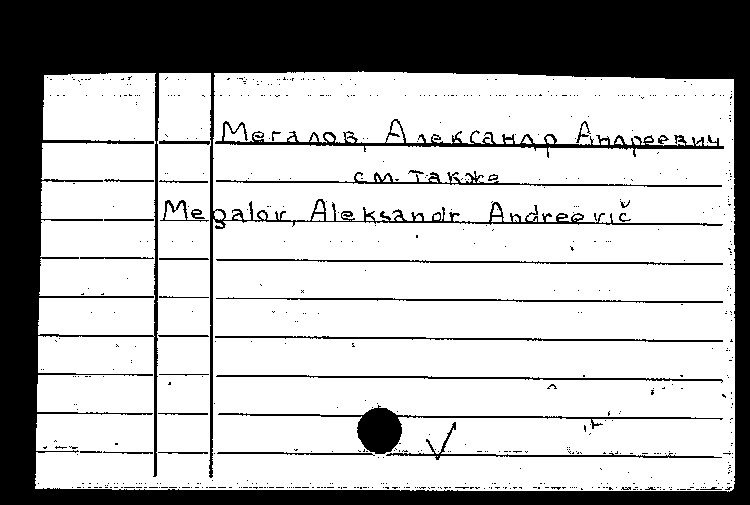 Мегалов, Александр Андреевич
см. также
Megalov, Aleksandr Andreevič